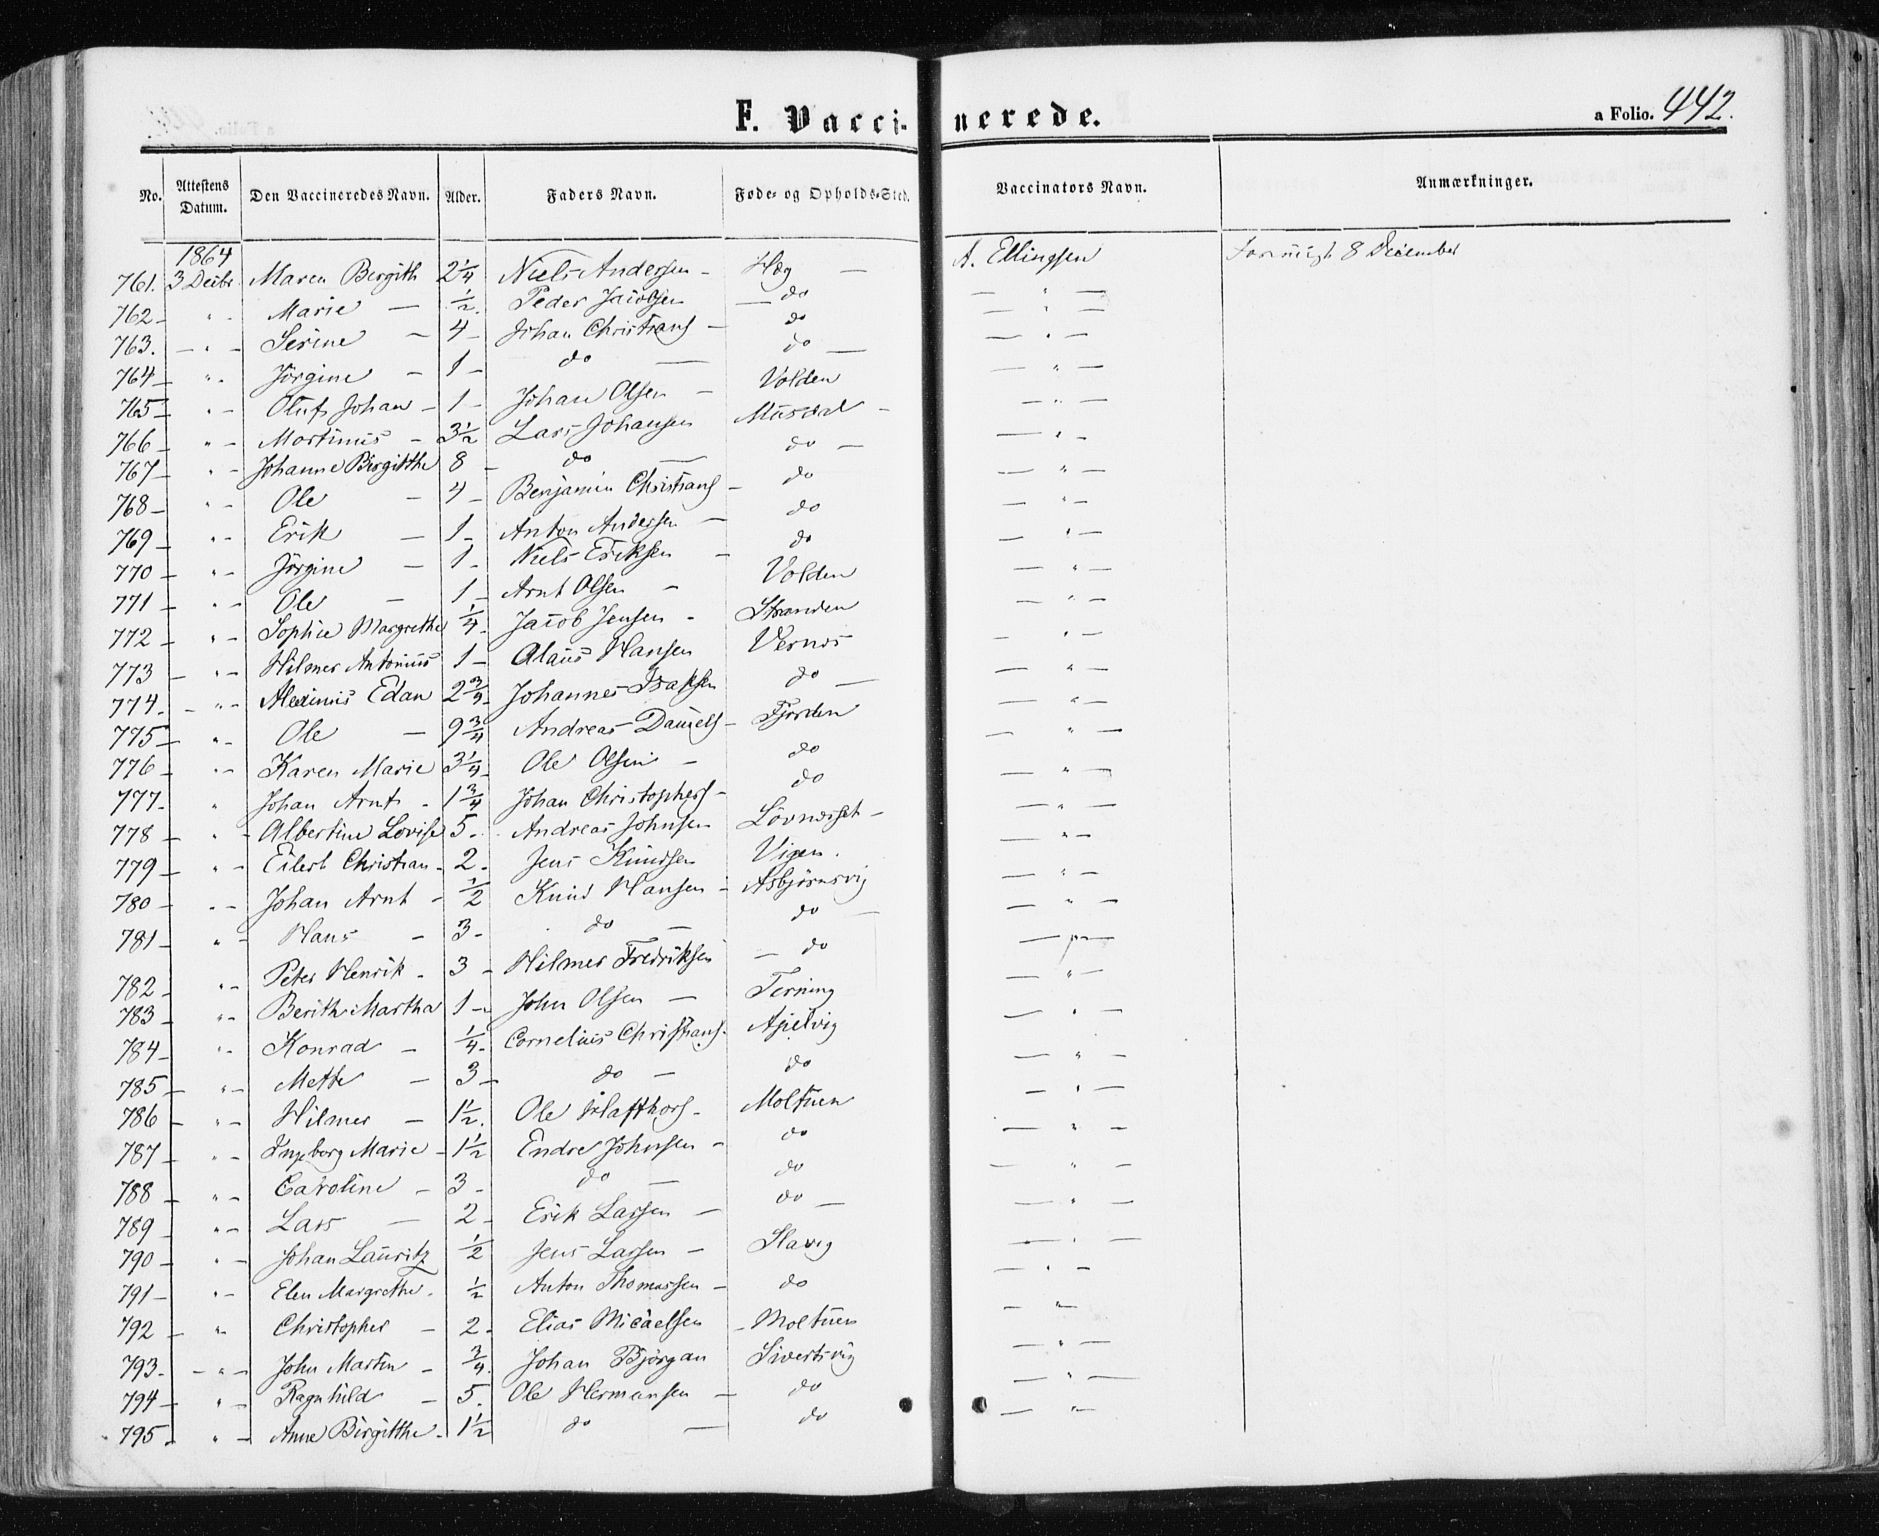 F. Vaccinerede.
a Folio. 442.
No. Attestens Datum. Den Vaccineredes Navn. Alder. Faders Navn. Føde- og Opholds-Sted. Vaccinators Navn. Anmærkninger.
1864
761. 3 Decbr. Maren Bergith 2 1/4 Niels Andersen - Hæg — A. Ellingsen 8 December
762 - " - Marie — 1/2. Peder Jacobsen — do — " —
763. - " - Serine - 4 - Johan Christians - do — " —
764 - " - Jörgine - 1 - do — do — — " —
765 - " - Oluf Johan - 1 - Johan Olsen - Volden — " —
766 - " - Mortinus - 3 1/2 Lars Johansen Musdal - — " —
767 - " - Johanne Birgitthe 8 - do — do — — " -
768 - " - Ole - 4 - Benjamin Christians - do — " —
769 - " - Erik — 1 - Anton Andersen - do — " —
770 - " - Jörgine — 1 - Niels Eriksen - do — " —
771 - " - Ole — 1 - Arnt Olsen - Volden — " —
772 - " - Sophie Margrethe 1/4 - Jacob Jensen - Stranden — " —
773 - " - Hilmer Antonius 1 - Claus Hansen Vernes — " —
774. - " - Aleximus Edan 2 3/4 - Johannes Isaksen do — — " —
775 - " - Ole — 9 3/4 Andreas Daniels - Fjorden — " —
776 - " - Karen Marie 3 1/4 - Ole Olsen - do — " —
777 - " Johan Arnt - 1 3/4 Johan Christophers - do — " —
778 - " - Albertine Lovise 5 - Andreas Johnsen Lövnesset - — " —
779 - " - Eilert Christian - 2 - Jens Knudsen Vigen. — " —
780 - " - Johan Arnt - 1/2 Knud Hansen - Asbjörnsvig — " —
781 - " - Hans - 3 - do — do — — " —
782 - " - Peter Henrik - 3 - Hilmer Fredriksen — do — " —
783 - " - Berith Martha 1 - John Olsen — Terning — " —
784 - " - Konrad - 1/4 - Cornelius Christians - Apelvig — " —
785 - " - Mette - 3 - do — do — " —
786 - " - Hilmer - 1 1/2. Ole Hafthors - Moltuen — " —
787 - " - Ingeborg Marie - 1 1/2 Endre Johnsen - do — " —
788 - " - Caroline - 3 - do — do — " —
789 - " - Lars — 2 - Erik Larsen — do — — " —
790 - " - Johan Lauritz 1/2 Jens Larsen — Slavig — " —
791 - " - Elen Margrethe - 1/2 Anton Thomassen - do — " —
792 - " - Christopher — 2 - Elias Micaelsen - Moltuen — " —
793. - " - John Martin - 3/4. Johan Björgan Sivertsvig — " —
794 - " - Ragnhild - 5. Ole Hermansen — do — " —
795. " - Anne Birgitthe - 1 1/2 do — do — " —